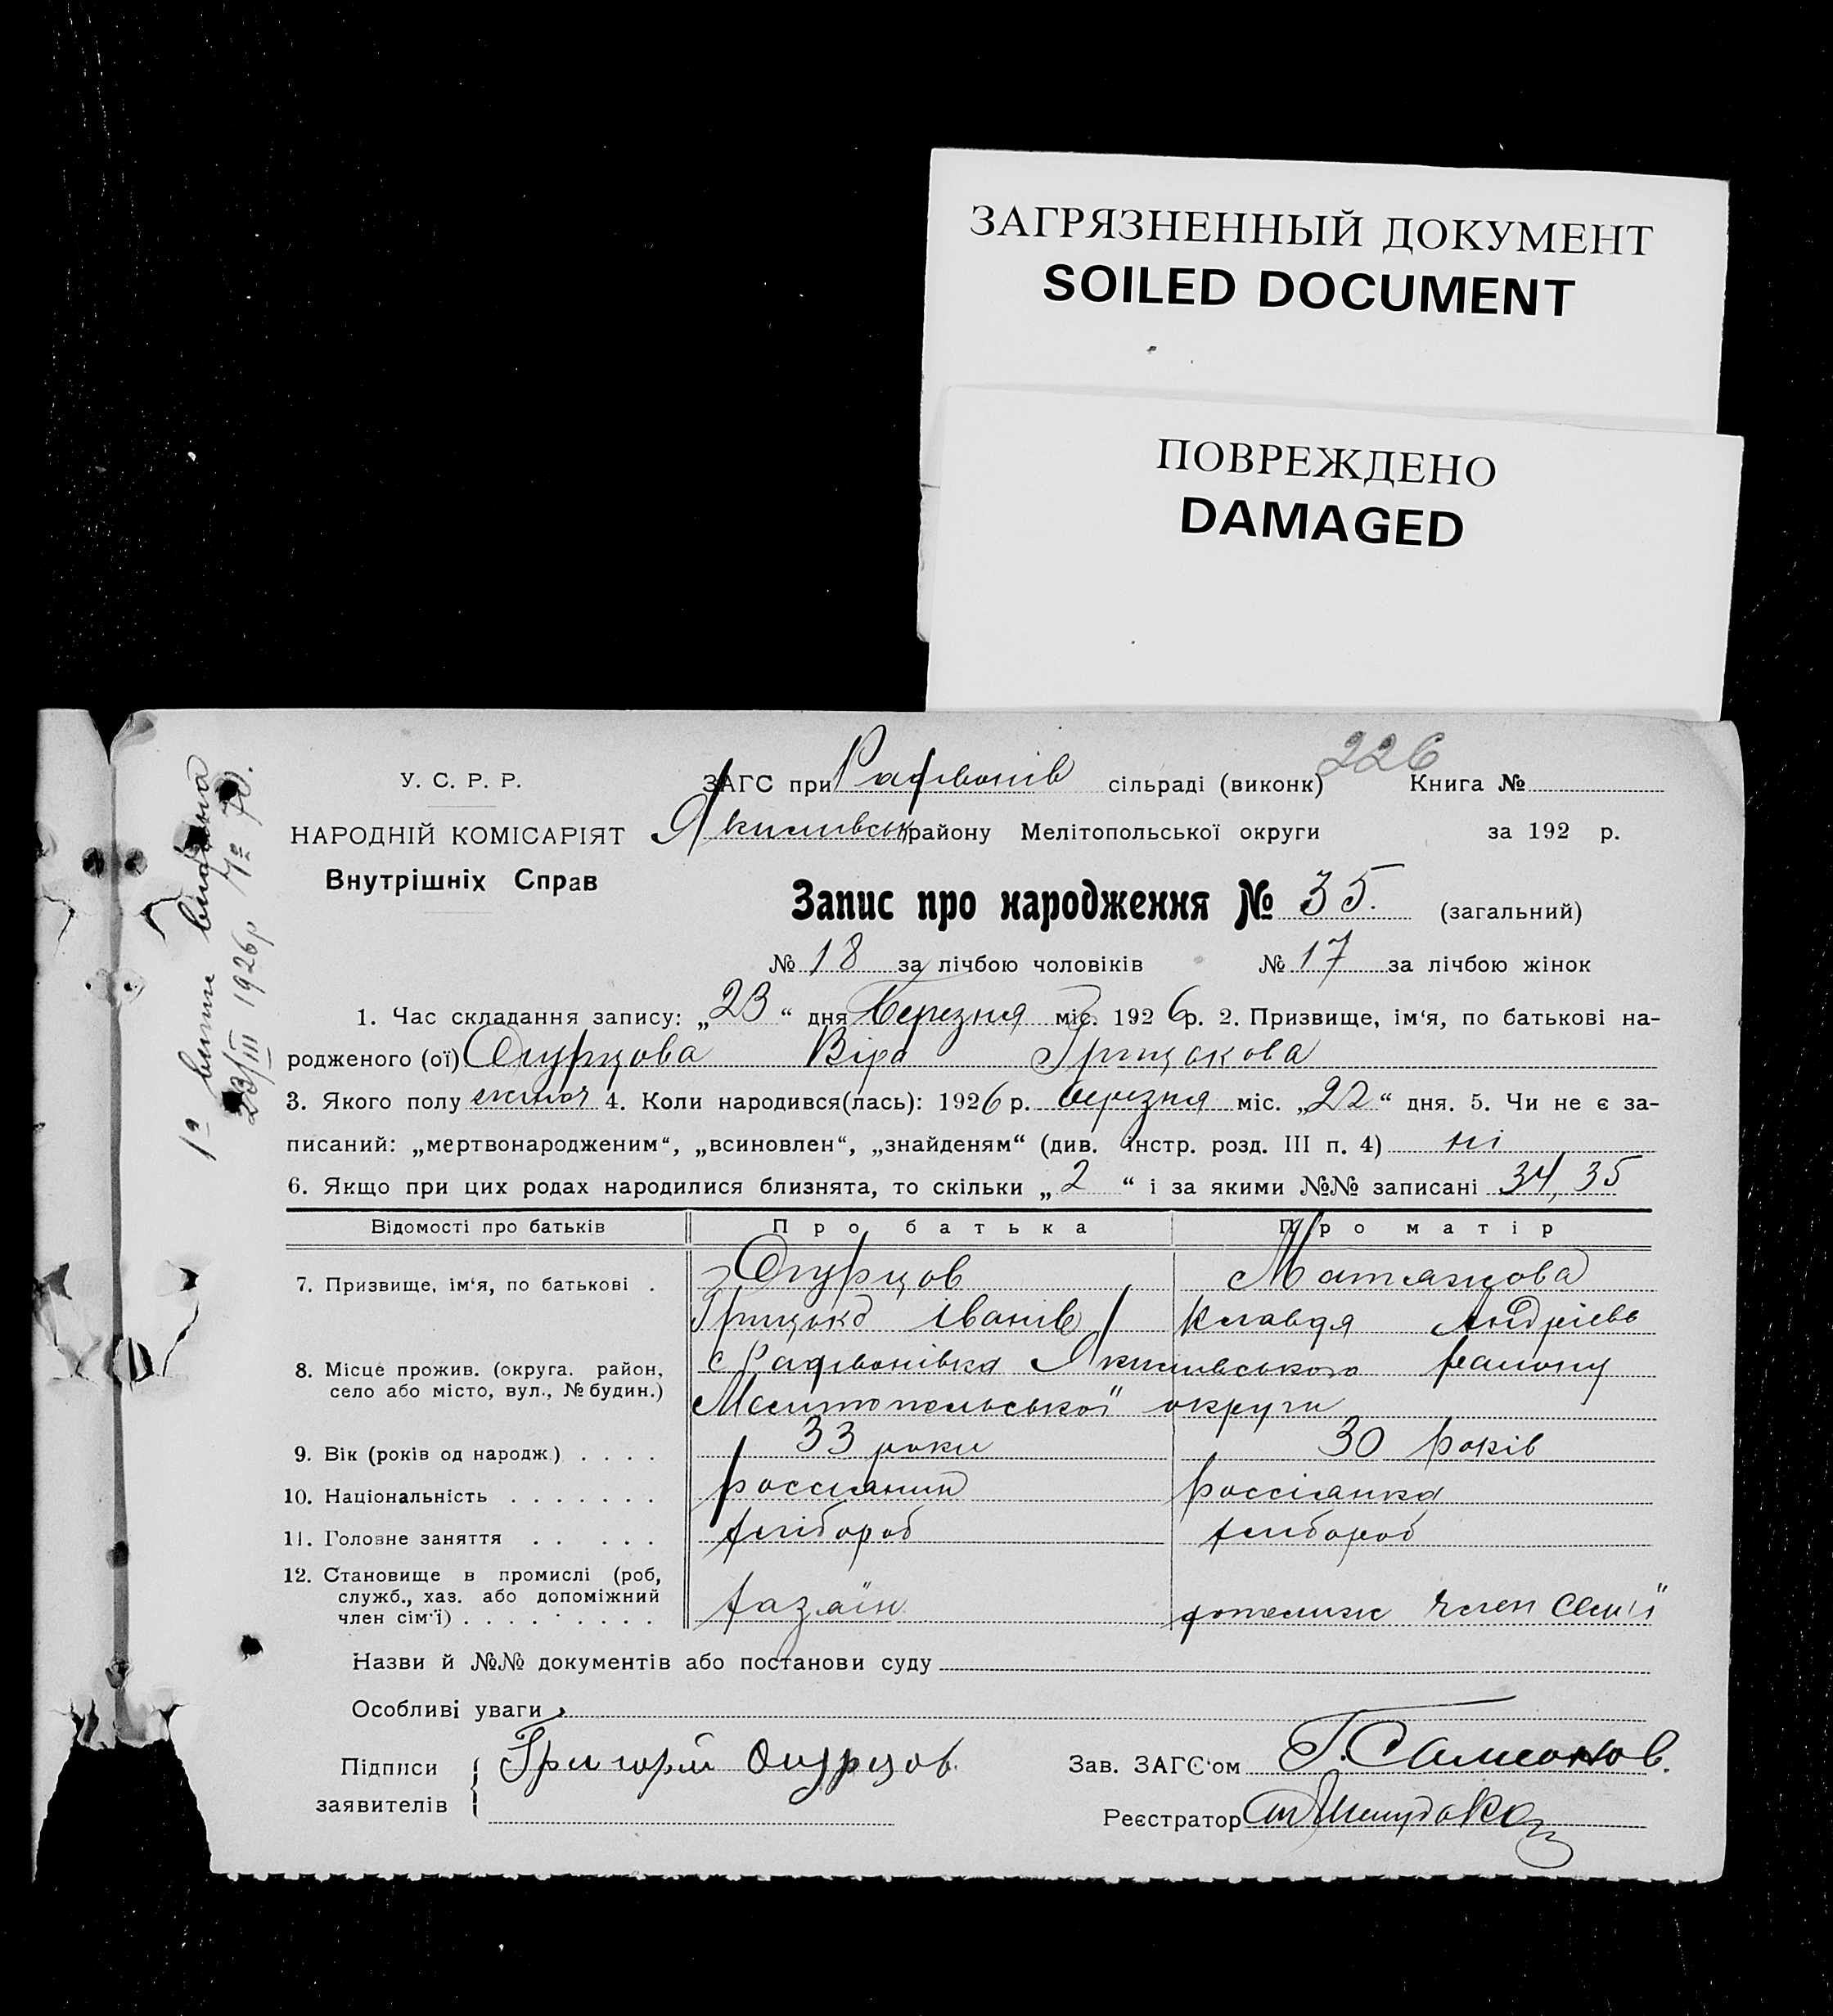 ЗАГРЯЗНЕННЫЙ ДОКУМЕНТ
SOILED DOCUMENT
ПОВРЕЖДЕНО
DAMAGED
226
У. С. Р. Р.
ЗАГС при Радівонів сільраді (виконк) Книга №
НАРОДНІЙ КОМІСАРІЯТ
Якимівськ району Мелітопольської округи за 192 р.
Внутрішніх Справ
Запис про народження № 35. (загальний)
№ 18 за лічбою чоловіків № 17 за лічбою жінок
1. Час складання запису: „23“ дня березня міс. 1926 р. 2. Призвище, ім‘я, по батькові на-
родженого (ої) Огурцова Віра Грицькова
3. Якого полу жіноч 4. Коли народився(лась): 1926 р. березня міс. „22“ дня. 5. Чи не є за-
писаний: „мертвонародженим“, „всиновлен“, „знайденям“ (див. інстр. розд. III п. 4) ні
6. Якщо при цих родах народилися близнята, то скільки „2“ і за якими №№ записані 34, 35
Відомості про батьків Про батька Про матір
7. Призвище, ім‘я, по батькові . Огурцов
Грицько Іванів Клавдя Андрієва
8. Місце прожив. (округа. район, село або місто, вул., № будин.) с Радівонівка Якимівського району
Мелітопольської округи
9. Вік (років од народж) . . . . 33 роки 30 років
10. Національність . . . . . . . россіянин россіянка
11. Головне заняття . . . . . хлібороб хлібороб
12. Становище в промислі (роб,
служб., хаз. або допоміжний
член сім‘ї) . . . . . . . . . хазяїн допоміжн член семії
Назви й №№ документів або постанови суду
Особливі уваги
Підписи Григорій Огурцов Зав. ЗАГС‘ом Г. Самсонов.
заявителів Реєстратор
1а випис видана
23/III 1926р № 70.